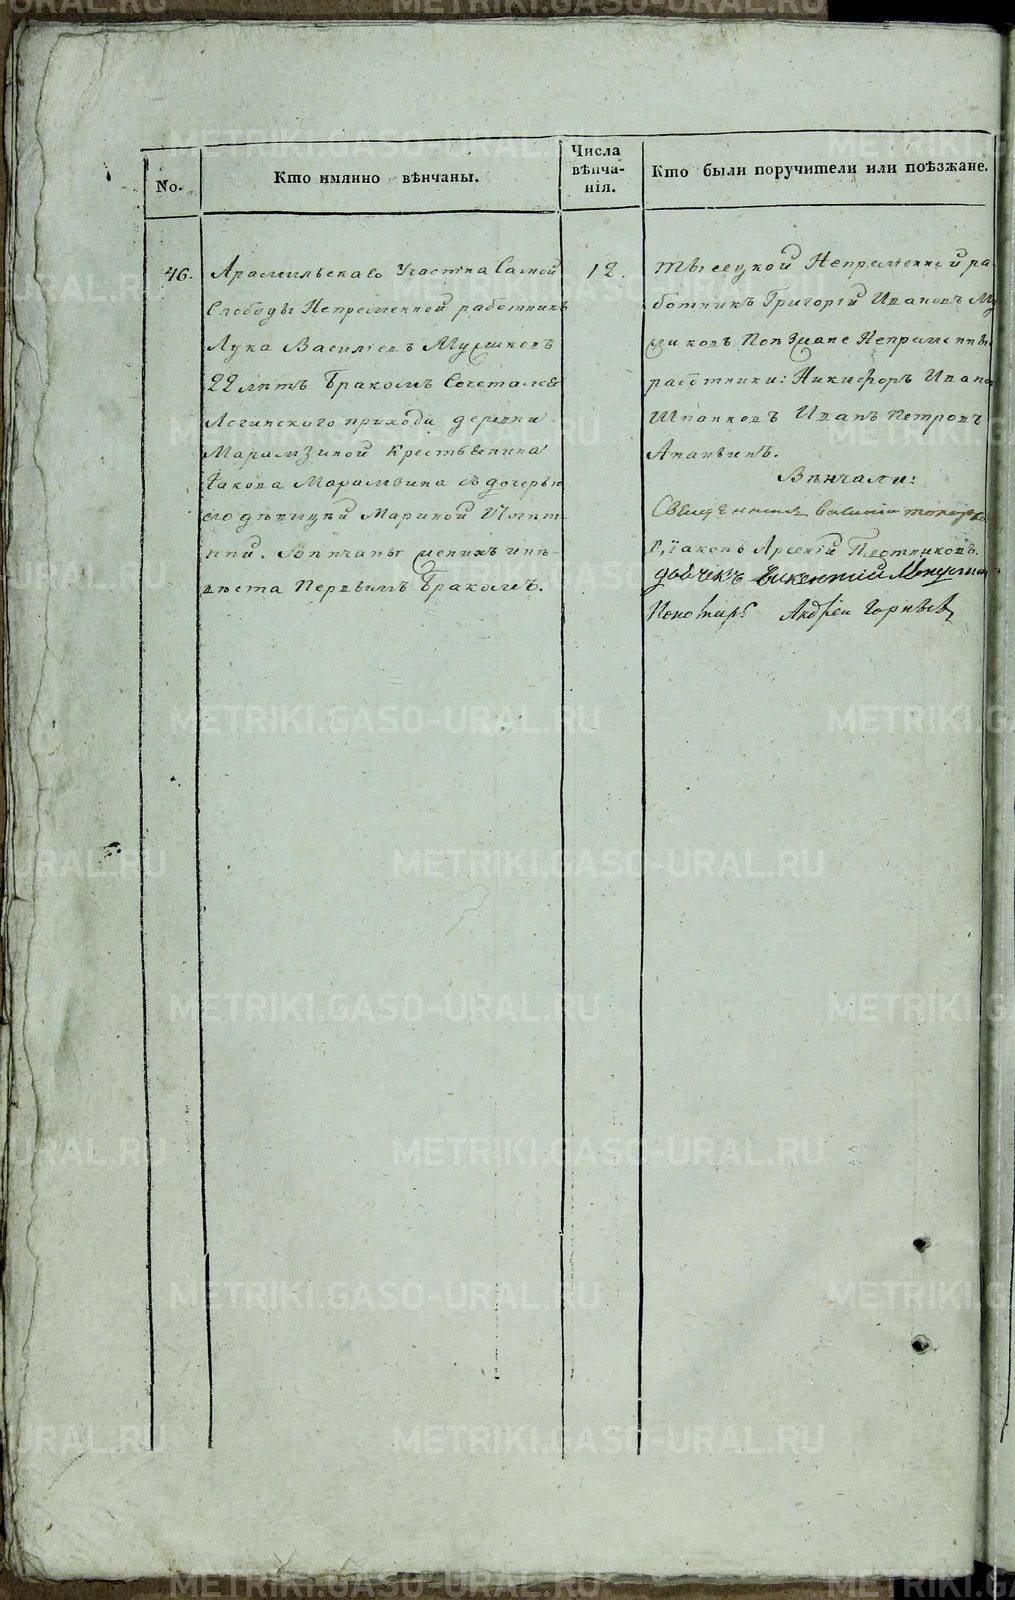 No.
Кто имянно вѣнчаны.
Числа
вѣнча-
нія.
Кто были поручители или поѣзжане.
46.
Арамильскаго Участка Самой
Слободы Непременной работникъ
Лука Васильевъ Мушковъ
22 лѣтъ бракомъ Сочетался
Логинского прихода деревни
Марамзиной крестьянина
Iакова Марамзина съ дочерью
его дѣвицей Мариной 17 лѣт-
ней. Вѣнчаны женихъ и не-
вѣста первымъ бракомъ.
12.
тысецкой Непременной ра
ботникъ Григорiй Ивановъ
Поезжане Непременны
работники: Никифоръ Ивано
Шпанковъ Иванъ Петровъ
Ананьинъ.
Вѣнчали:
Священник
Дiаконъ Арсенiй Плотниковъ.
дьячекъ Викентий
Пономарь Андрей
METRIKI.GASO-URAL.RU